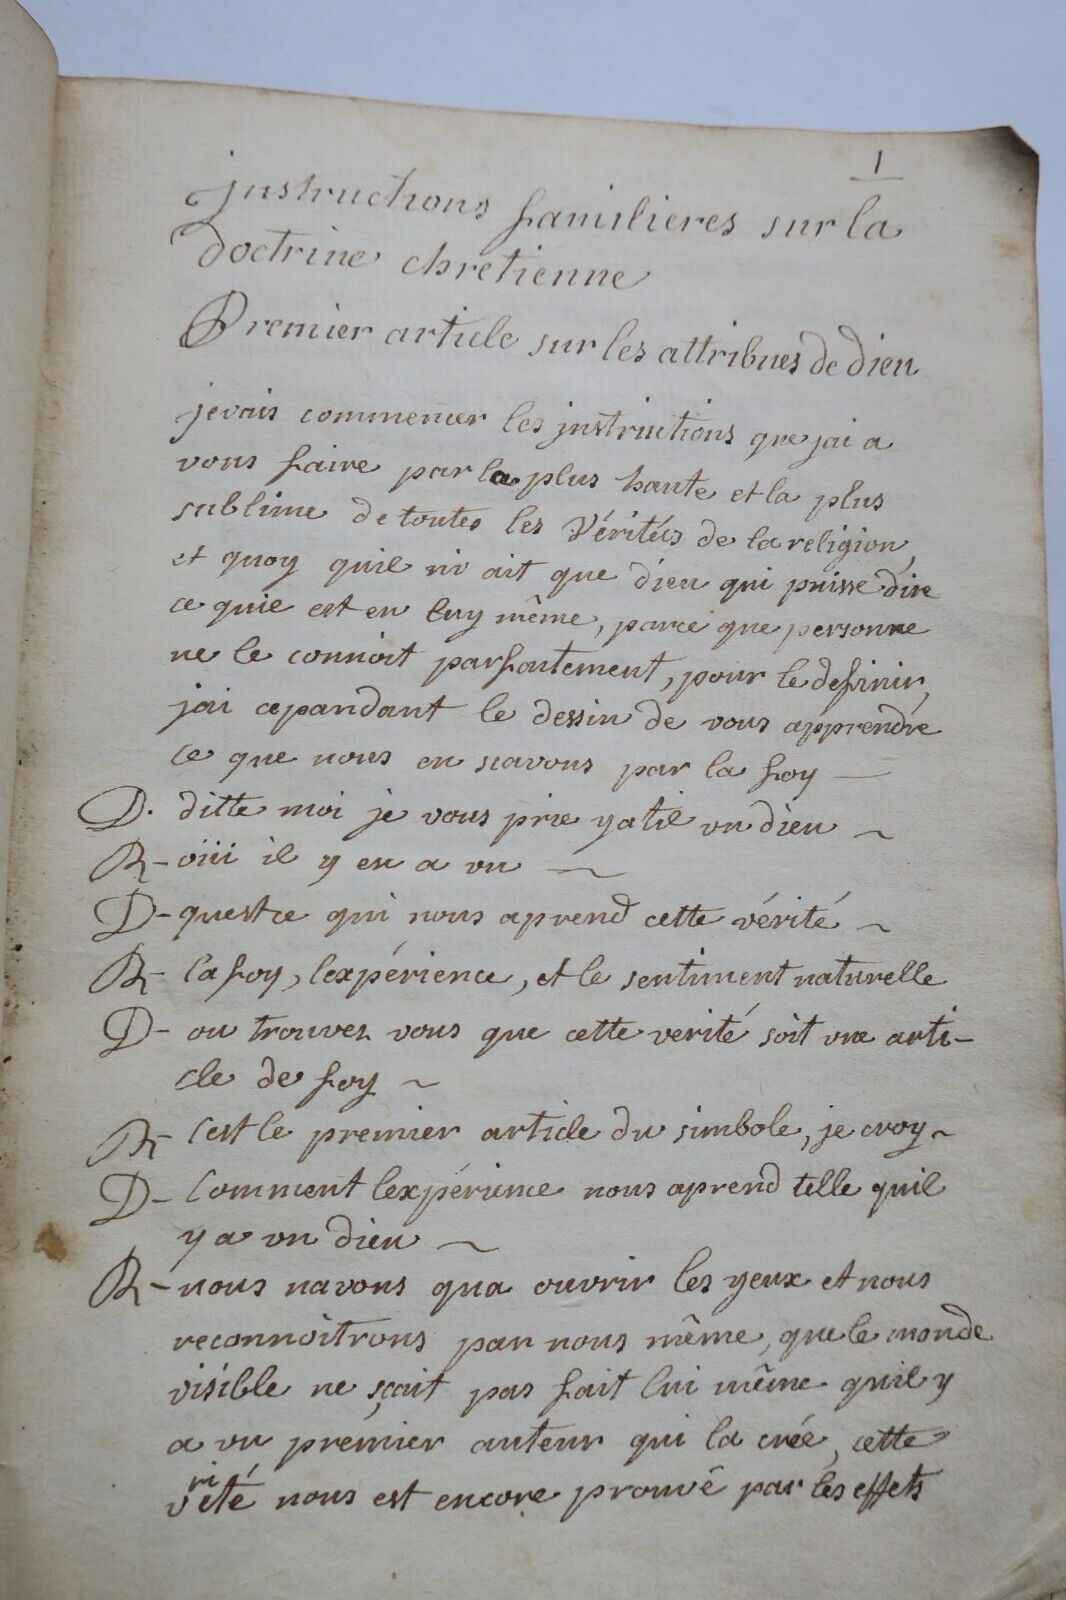 1
jnstructions familieres sur la
doctrine chretienne
Premier article sur les attribues de dieu
jevais commencer les jnstructions que jai a
vous faire par la plus haute et la plus
sublime de toutes les Véritées de la religion,
et quoy quil ni ait que dieu qui puisse dire
ce quil est en luy même, parce que personne
ne le connoit parfaitement, pour le definir,
jai cepandant le dessin de vous apprendre
ce que nous en scavons par la foy —
D. ditte moi je vous prie yatil un dieu ~
R - oüi il y en a un ~
D - questce qui nous aprend cette vérité ~
R - la foy, lexpérience, et le sentiment naturelle
D - ou trouvez vous que cette verité soit une arti-
cle de foy ~
R - Cest le premier article du simbole, je croy ~
D - Comment lexpérience nous aprend telle quil
y a un dieu ~
R - nous navons qua ouvrir les yeux et nous
reconnoitrons par nous même, que le monde
visible ne sçait pas fait lui même quil y
a un premier auteur qui la créé, cette
vérité nous est encore prouvé par les effets